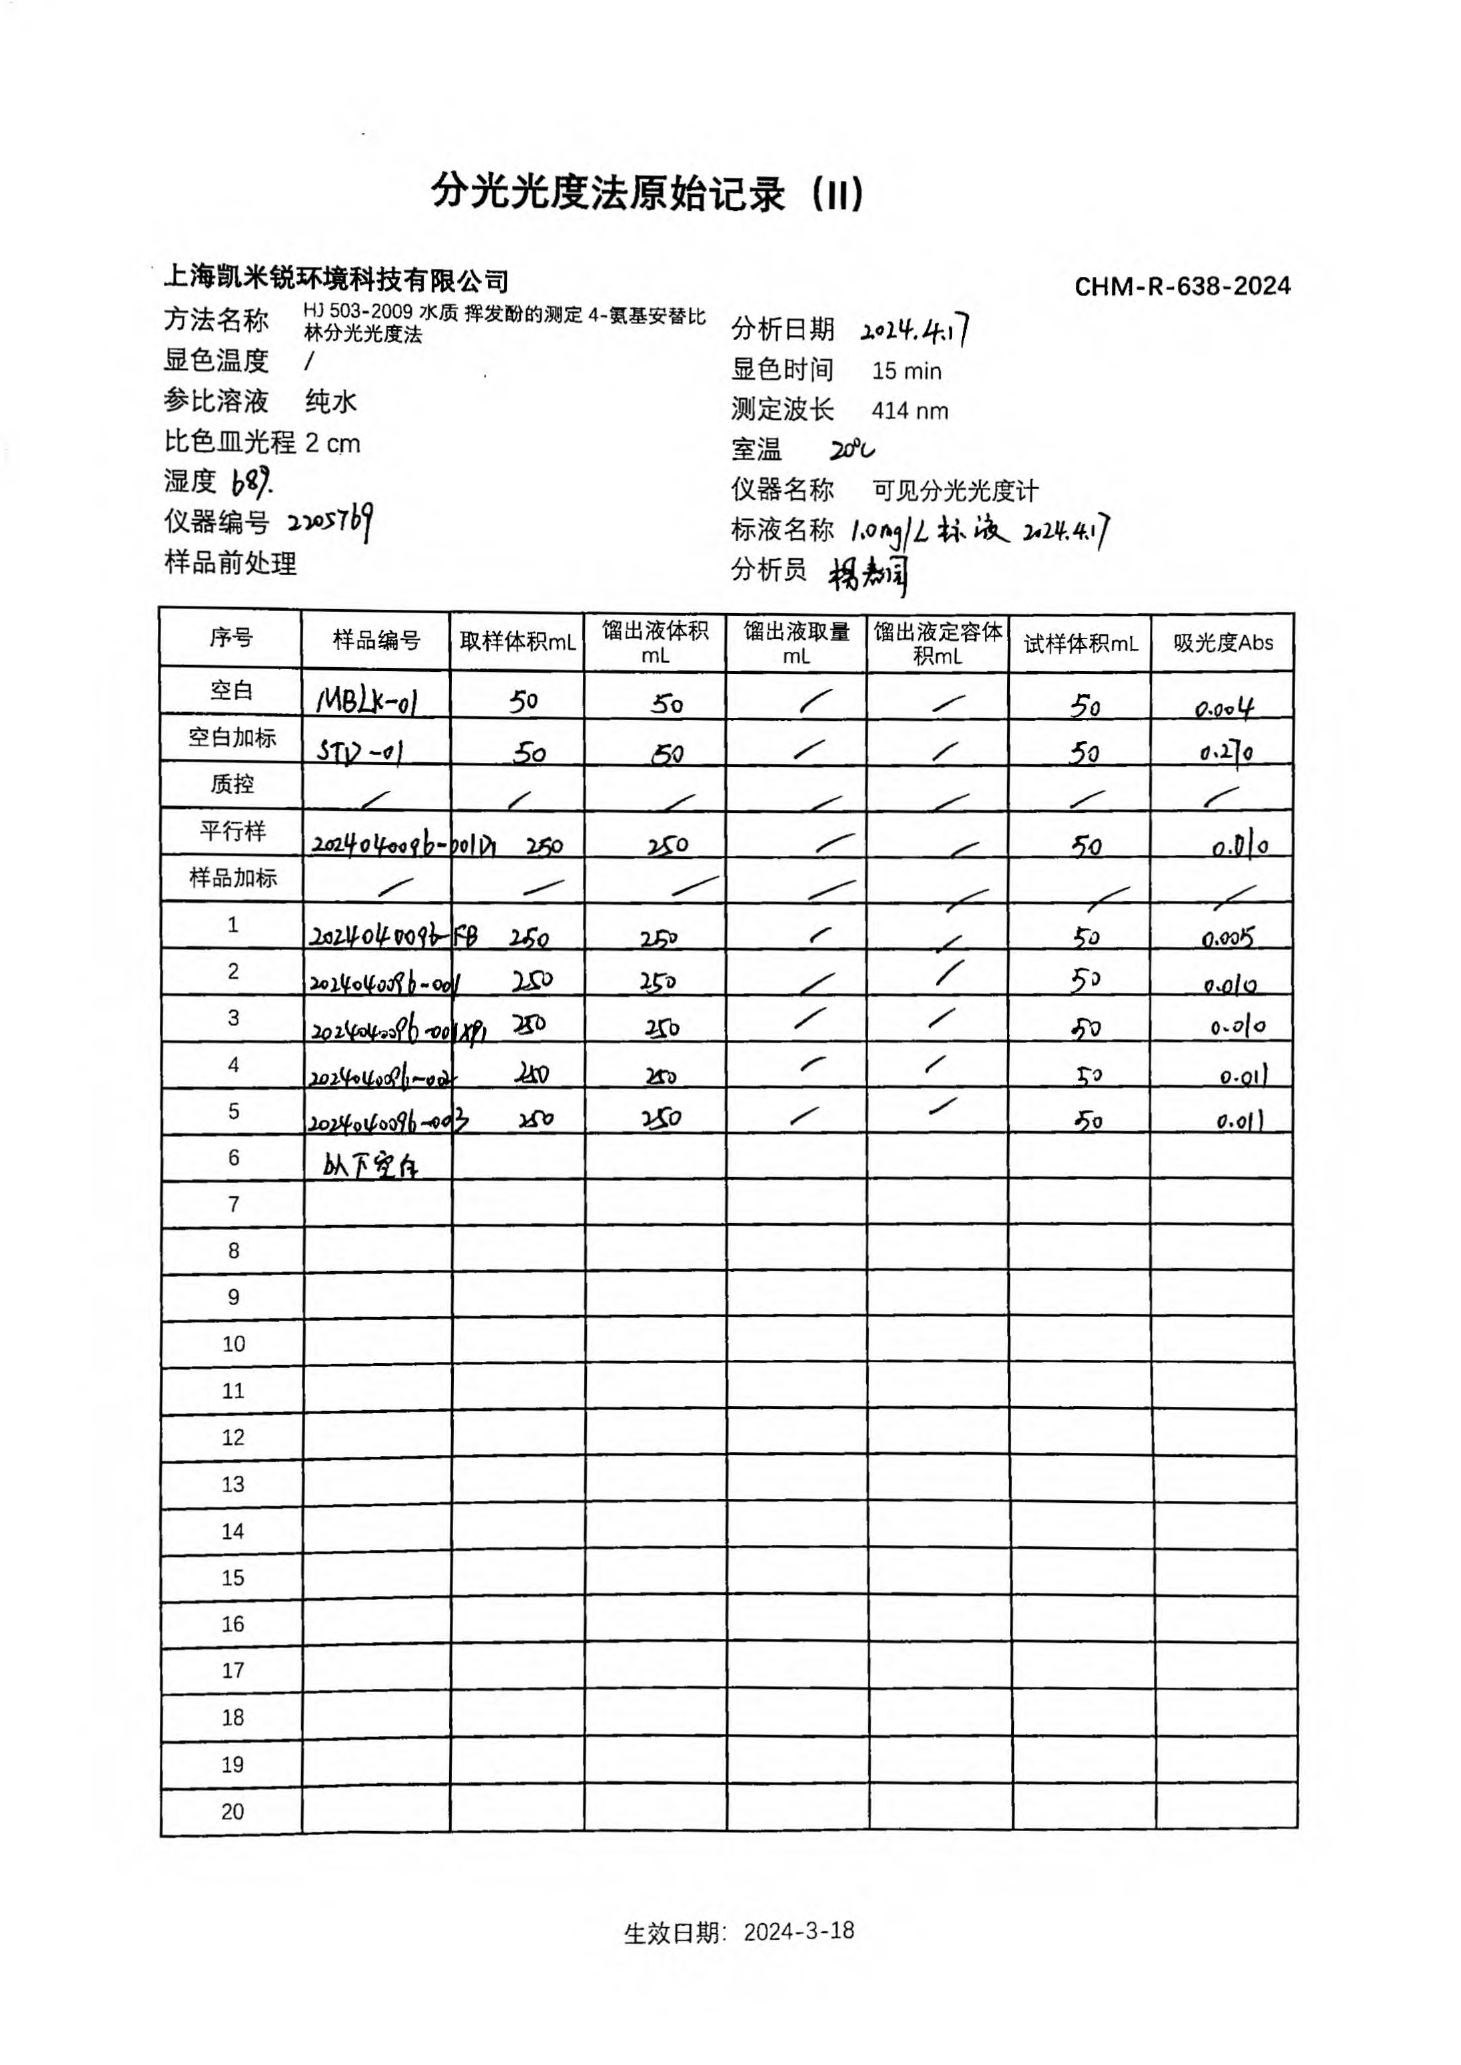 分光光度法原始记录（II）
上海凯米锐环境科技有限公司
CHM-R-638-2024
方法名称 HJ 503-2009 水质 挥发酚的测定 4-氨基安替比
林分光光度法
分析日期 2024.4.17
显色温度 /
显色时间 15 min
参比溶液 纯水
测定波长 414 nm
比色皿光程 2 cm
室温 20℃
湿度 68%
仪器名称 可见分光光度计
仪器编号 2205769
标液名称 1.0mg/L 标液 2024.4.17
样品前处理
分析员
序号 样品编号 取样体积mL 馏出液体积mL 馏出液取量mL 馏出液定容体积mL 试样体积mL 吸光度Abs
空白 MBLK-01 50 50 / / 50 0.004
空白加标 STD-01 50 50 / / 50 0.270
质控 / / / / / / /
平行样 2024040096-001D1 250 250 / / 50 0.010
样品加标 / / / / / / /
1 2024040096-FB 250 250 / / 50 0.005
2 2024040096-001 250 250 / / 50 0.010
3 2024040096-001XP1 250 250 / / 50 0.010
4 2024040096-002 250 250 / / 50 0.011
5 2024040096-003 250 250 / / 50 0.011
6 以下空白
7
8
9
10
11
12
13
14
15
16
17
18
19
20
生效日期：2024-3-18